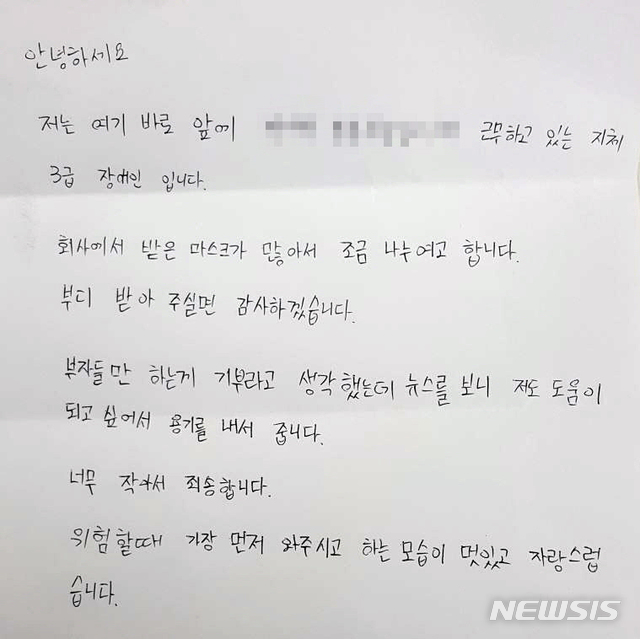 안녕하세요
저는 여기 바로 앞에 근무하고 있는 지체
3급 장애인 입니다.
회사에서 받은 마스크가 많아서 조금 나누여고 합니다.
부디 받아 주실면 감사하겠습니다.
부자들만 하는게 기부라고 생각했는데 뉴스를 보니 저도 도움이
되고 싶어서 용기를 내서 줍니다.
너무 작아서 죄송합니다.
위험할때 가장 먼저 와주시고 하는 모습이 멋있고 자랑스럽
습니다.
NEWSIS